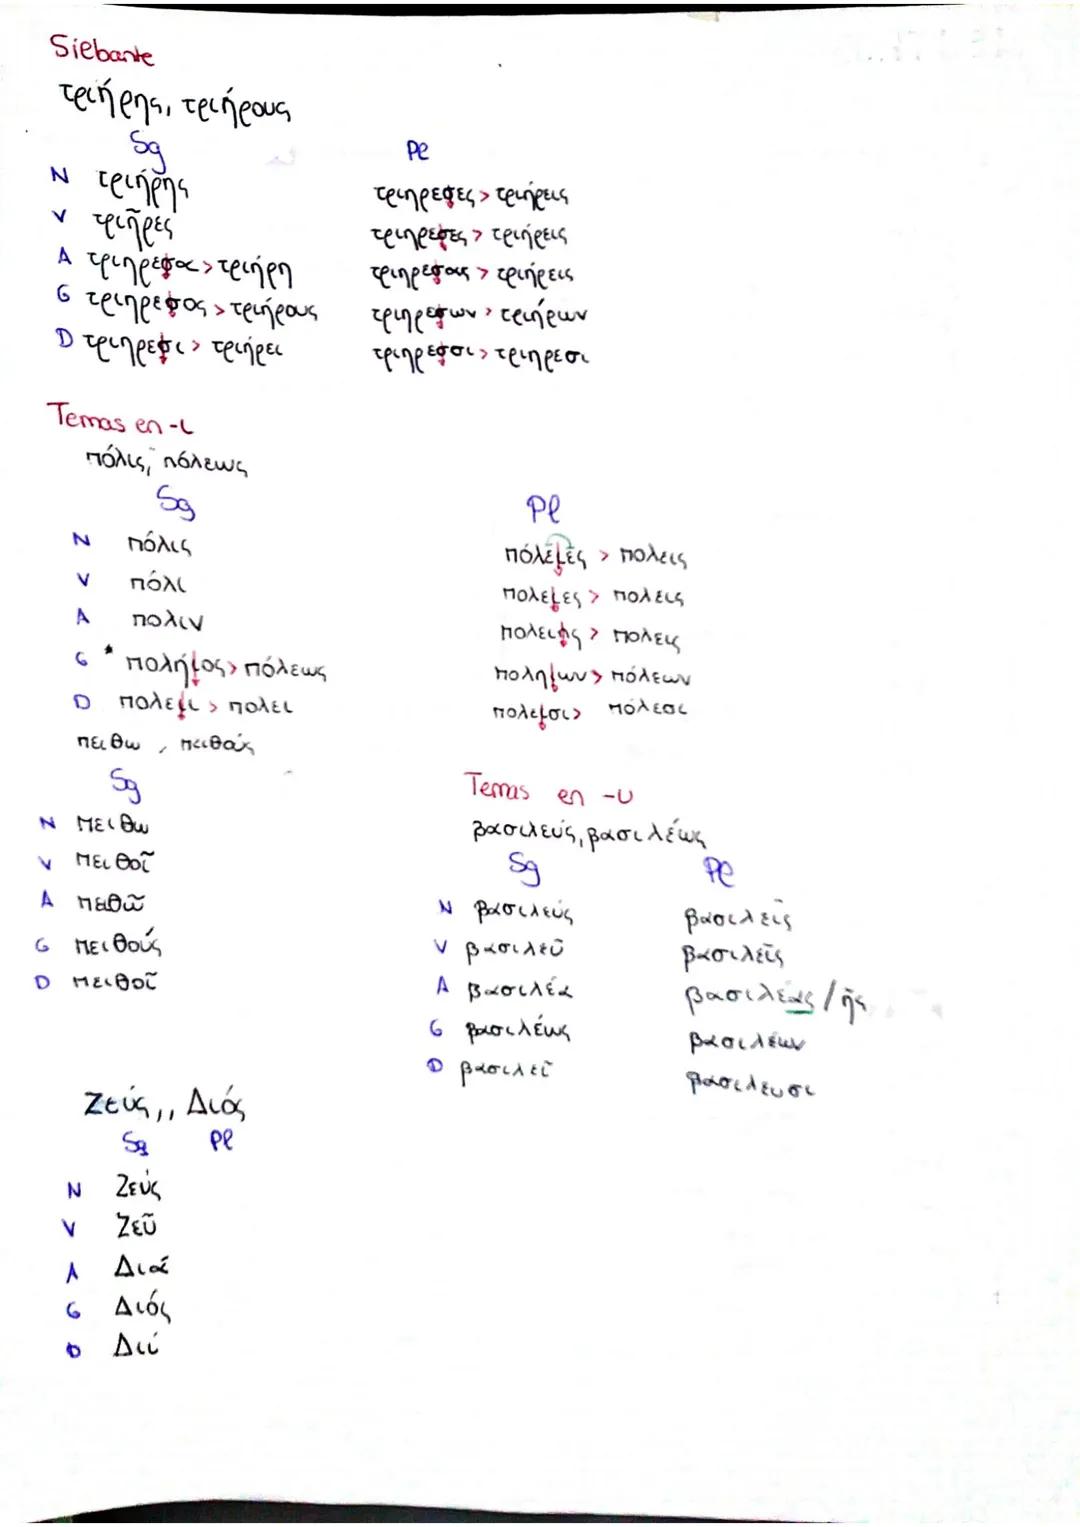 Silbante
τριήρης, τριήρους
Sg Pl
N τριήρης τριηρεσες > τριήρεις
V τριῆρες τριηρεσες > τριήρεις
A τριηρεσα > τριήρη τριηρεσας > τριήρεις
G τριηρεσος > τριήρους τριηρεσων > τριήρων
D τριηρεσι > τριήρει τριηρεσσι > τριηρεσι
Temas en -ι
πόλις, πόλεως
Sg Pl
N πόλις πόλειες > πολεις
V πόλι πολειες > πολεις
A πολιν πολεις > πολεις
G * πολήιος > πόλεως ποληιων > πόλεων
D πολειι > πολει πολεισι > πόλεσι
πειθω, πειθούς
Sg
N πειθω
V πειθοῖ
A πειθῶ
G πειθούς
D πειθοῖ
Temas en -υ
βασιλεύς, βασιλέως
Sg Pl
N βασιλεύς βασιλεῖς
V βασιλεῦ βασιλεῖς
A βασιλέα βασιλέας / ῆς
G βασιλέως βασιλέων
D βασιλεῖ βασιλευσι
Ζεύς,, Διός
Sg Pl
N Ζεύς
V Ζεῦ
A Διά
G Διός
D Διί